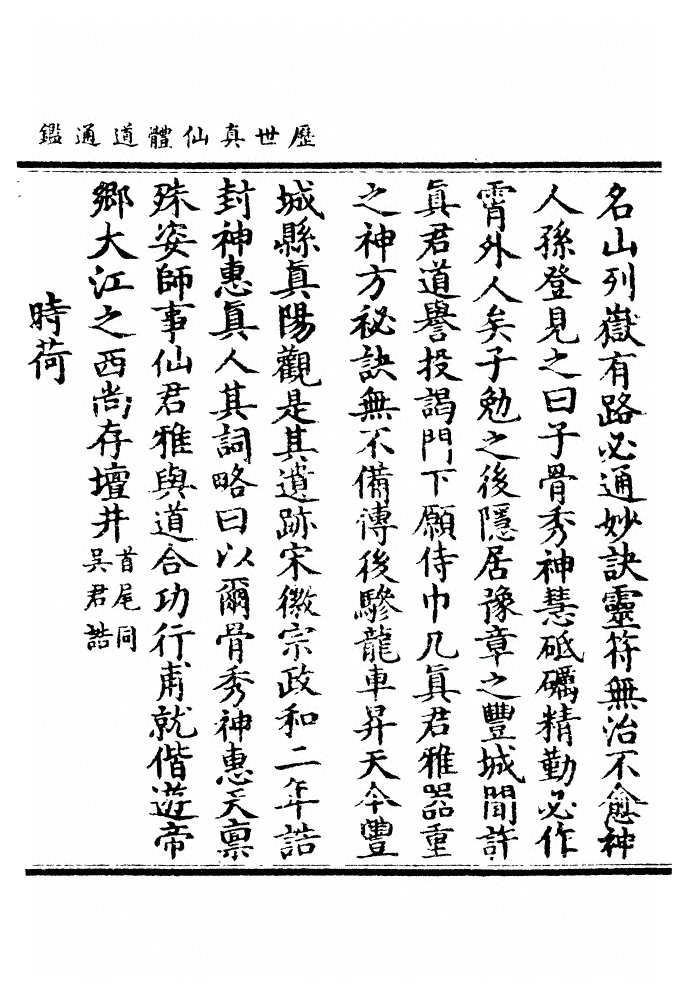 歷世真仙體道通鑑
名山列嶽有路必通妙訣靈符無治不愈神
人孫登見之曰子骨秀神慧砥礪精勤必作
霄外人矣子勉之後隱居豫章之豐城聞許
真君道譽投謁門下願侍巾几真君雅器重
之神方秘訣無不備傳後驂龍車昇天今豐
城縣真陽觀是其遺跡宋徽宗政和二年誥
封神惠真人其詞略曰以爾骨秀神惠天稟
殊姿師事仙君雅與道合功行甫就偕遊帝
鄉大江之西尚存壇井首尾同吳君誥
時荷